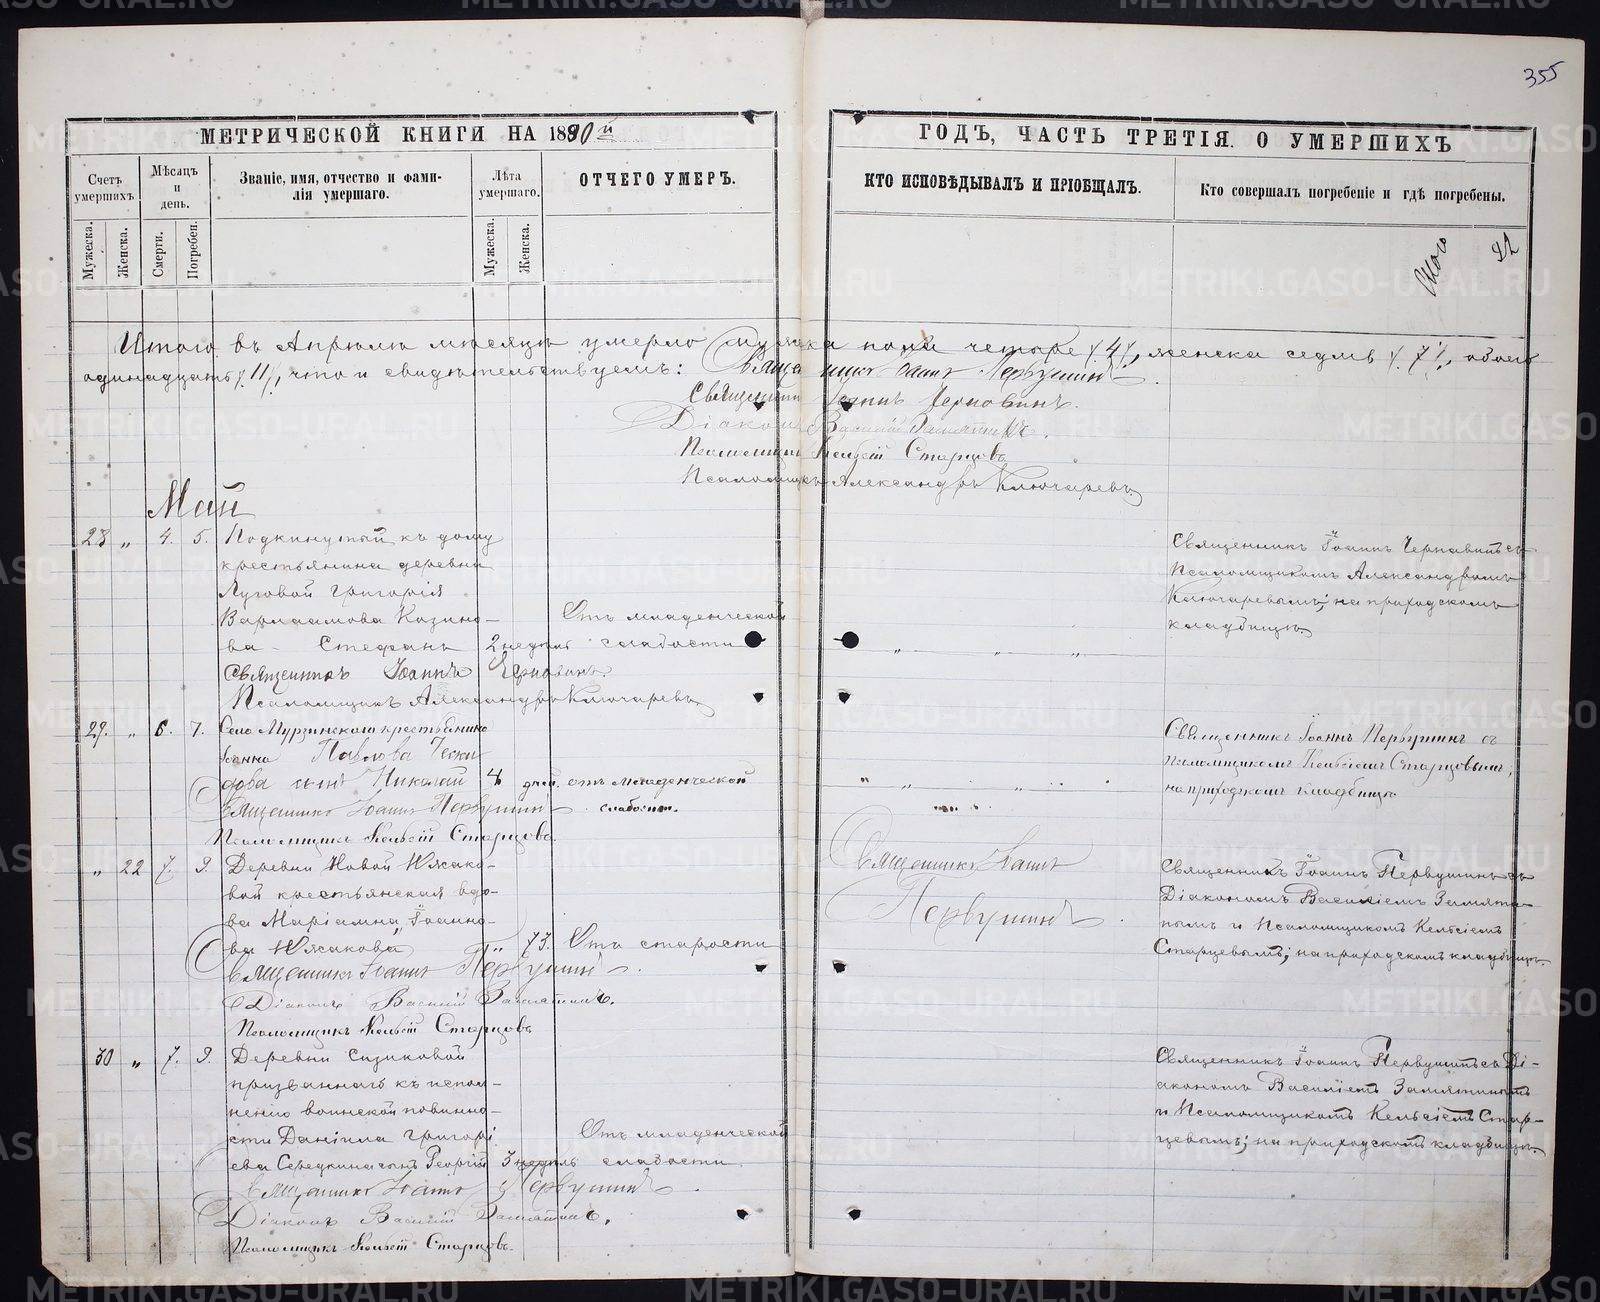 355
МЕТРИЧЕСКОЙ КНИГИ НА 1890й
ГОДЪ, ЧАСТЬ ТРЕТІЯ О УМЕРШИХЪ
Счетъ умершихъ
Мѣсяцъ и день.
Званіе, имя, отчество и фами-
лія умершаго.
Лѣта умершаго.
ОТЧЕГО УМЕРЪ.
КТО ИСПОВѢДЫВАЛЪ И ПРІОБЩАЛЪ.
Кто совершалъ погребеніе и гдѣ погребены.
Мужеска.
Женска.
Смерти.
Погребен.
Мужеска.
Женска.
Итого въ Апрѣлѣ мѣсяцѣ умерло мужеска пола четыре /4/, женска седмь /7/, обоего
одинадцать /11/, что и свидѣтельствуемъ: Священникъ Іоаннъ Первушинъ
Священникъ Іоаннъ Чернавинъ.
Діаконъ Василій Замятинъ.
Псаломщикъ Кельсій Старцевъ
Псаломщикъ Александръ Ключаревъ
Май
28 „ 4. 5. Подкинутый къ дому
крестьянина деревни
Луговой Григорія
Варлаамова Казино-
ва Стефанъ
2 недѣль
Отъ младенческой
слабости
„ „ „
Священникъ Іоаннъ Чернавинъ съ
Псаломщикомъ Александромъ
Ключаревымъ; на приходскомъ
кладбищѣ.
Священникъ Іоаннъ Чернавинъ.
Псаломщикъ Александръ Ключаревъ
29. „ 6. 7. Села Мурзинскаго крестьянина
Іоанна Павлова
сынъ Николай
4 дней.
отъ младенческой
слабости.
Священникъ Іоаннъ Первушинъ съ
псаломщикомъ Кельсіемъ Старцовымъ;
на приходскомъ кладбищѣ
Священникъ Іоаннъ Первушинъ
Псаломщикъ Кельсій Старцовъ.
„ 22 7. 9. Деревни Новой
крестьянская вдо-
ва Маріамна Іоанно-
ва
„ 73. Отъ старости
Священникъ Іоаннъ
Первушинъ
Священникъ Іоаннъ Первушинъ съ
Діакономъ Василіемъ Замяти-
нымъ и Псаломщикомъ Кельсіемъ
Старцевымъ; на приходскомъ кладбищѣ.
Священникъ Іоаннъ Первушинъ.
Діаконъ Василій Замятинъ.
Псаломщикъ Кельсій Старцовъ
30 „ 7. 9. Деревни Сизиковой
призваннаго къ испол-
ненію воинской повинно-
сти Даніила Григорі
ева Середкина сынъ Георгій
3 недѣль
Отъ младенческой
слабости
Священникъ Іоаннъ Первушинъ съ Ді-
акономъ Василіемъ Замятинымъ
и Псаломщикомъ Кельсіемъ Стар-
цевымъ; на приходскомъ кладбищѣ.
Священникъ Іоаннъ Первушинъ.
Діаконъ Василій Замятинъ.
Псаломщикъ Кельсій Старцовъ.
METRIKI.GASO-URAL.RU